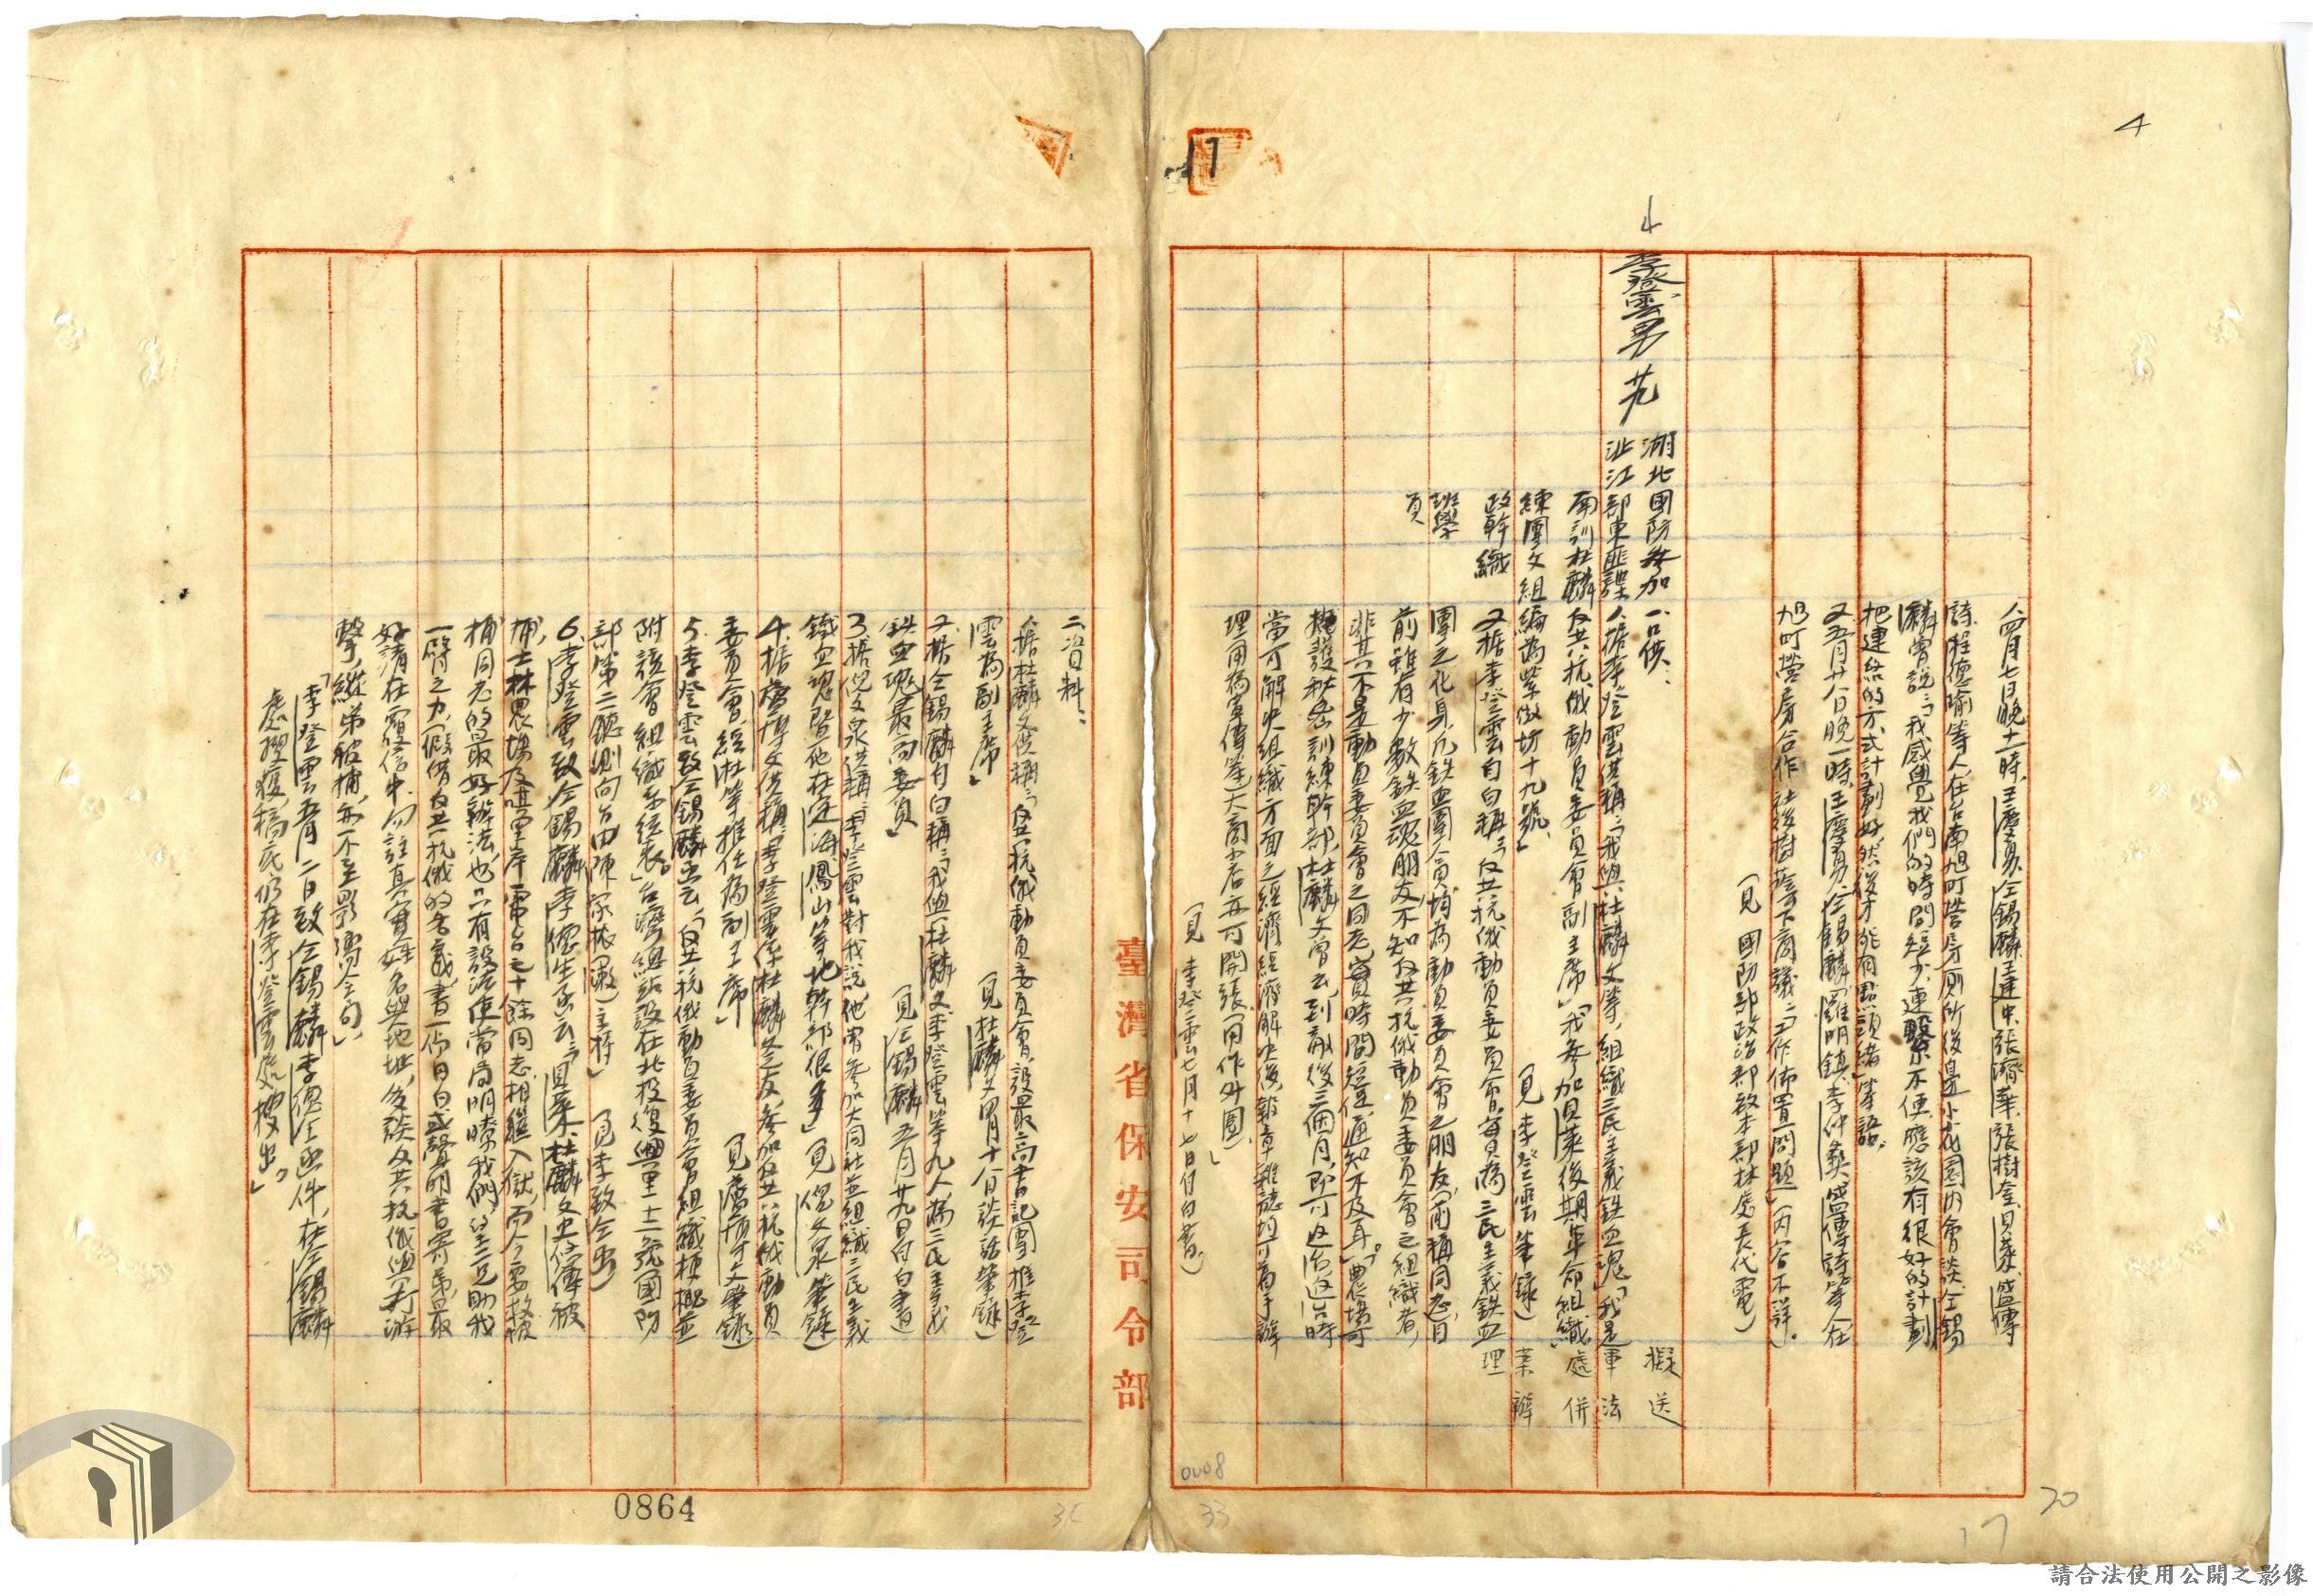 4
17
八四月七日晚十一時,王慶勇、仝錫麟、王建中、張濟華、張樹奎、具萊、盛傳
詩、程德喻等人在台南旭町營房廁所後邊小花園內會談,仝錫
麟曾說:「我感覺我們的時間短少,連繫不便,應該有很好的計劃
把連絡的方式計劃好,然後才能有點頭緒」等語。
又五月廿八日晚一時,王慶勇、仝錫麟、羅明鎮、李仲奠、盛傳詩等人在
旭町營房合作社後樹蔭下商議:「工作佈置問題」(內容不詳。
(見 國防部政治部致本部林處長代電)
4 李登雲 男 廿九
湖北 國防 參加 一、口供:
沚江 部東 匪諜 人據李登雲供稱:「我與杜麟文等,組織三民主義鉄血魂」「我是
南訓 杜麟 反共抗俄動員委員會副主席」「我參加具萊後期革命組織,
練團 文組 編為業做坊十九號」 (見李登雲筆錄)
政幹 織 又據李登雲自白稱:「反共抗俄動員委員會,每員為三民主義鉄血
班學 團之化身,凡鉄血團人員,均為動員委員會之朋友(前稱同志,)目
員 前雖有少數鉄血魂朋友,不知反共抗俄動員委員會之組織者,
非其不是動員委員會之同志,實時間短促通知不及耳。」「農場可
掩護秘密訓練幹部,杜麟文曾云,到敵後三個月,即可返台,返台時
當可解決組織方面之經濟,經濟解決後,報章雜誌均可着手辦
理用為宣傳,茶大商小店亦可開張,用作外圍,」
(見李登雲七月十七日自白書,)
擬送
軍法
處併
案辦
理
0008
33
17
20
臺灣省保安司令部
二、資料:
人據杜麟文供稱:「反共抗俄動員委員會,設最高書記團,推李登
雲為副主席」 (見杜麟文四月十八日談話筆錄)
又、據仝錫麟自白稱:「我與杜麟文李登雲等九人為三民主義
鉄血魂最高委員」 (見仝錫麟五月廿九日自白書)
3、據倪文泉供稱:「李登雲對我說,他曾參加大同社並組織三民主義
鐵血魂,暨他在定海,鳳山等地幹部很多」(見倪文泉筆錄)
4、據盧博文供稱:「李登雲係杜麟文之友,參加反共抗俄動員
委員會,經杜等推任為副主席」 (見盧博文筆錄)
5、李登雲致仝錫麟函云:「反共抗俄動員委員會組織梗概並
附該會組織系統表」台灣總站設在北投復興里十二號國防
部第二聽測向台由陳家棪(漱)主持」 (見李致仝函)
6、李登雲致仝錫麟李傯生函云:「具萊、杜麟文、史俊傳被
捕,士林農場及嗶軍岸電台之十餘同志相繼入獄,而今要救被
捕同志的最好辦法,也只有設法使當局明瞭我們,望二兄助我
一臂之力,假借反共抗俄的名義,書一份自白或聲明書寄弟,最
好請在覆信中,勿註真實姓名與地址,多談反共抗俄與打游
擊,縱弟被捕,亦不至影響全局」,
「李登雲五月二日致仝錫麟李傯生函件,在仝錫麟
處搜獲,稿底仍在李登雲處搜出。」
0864